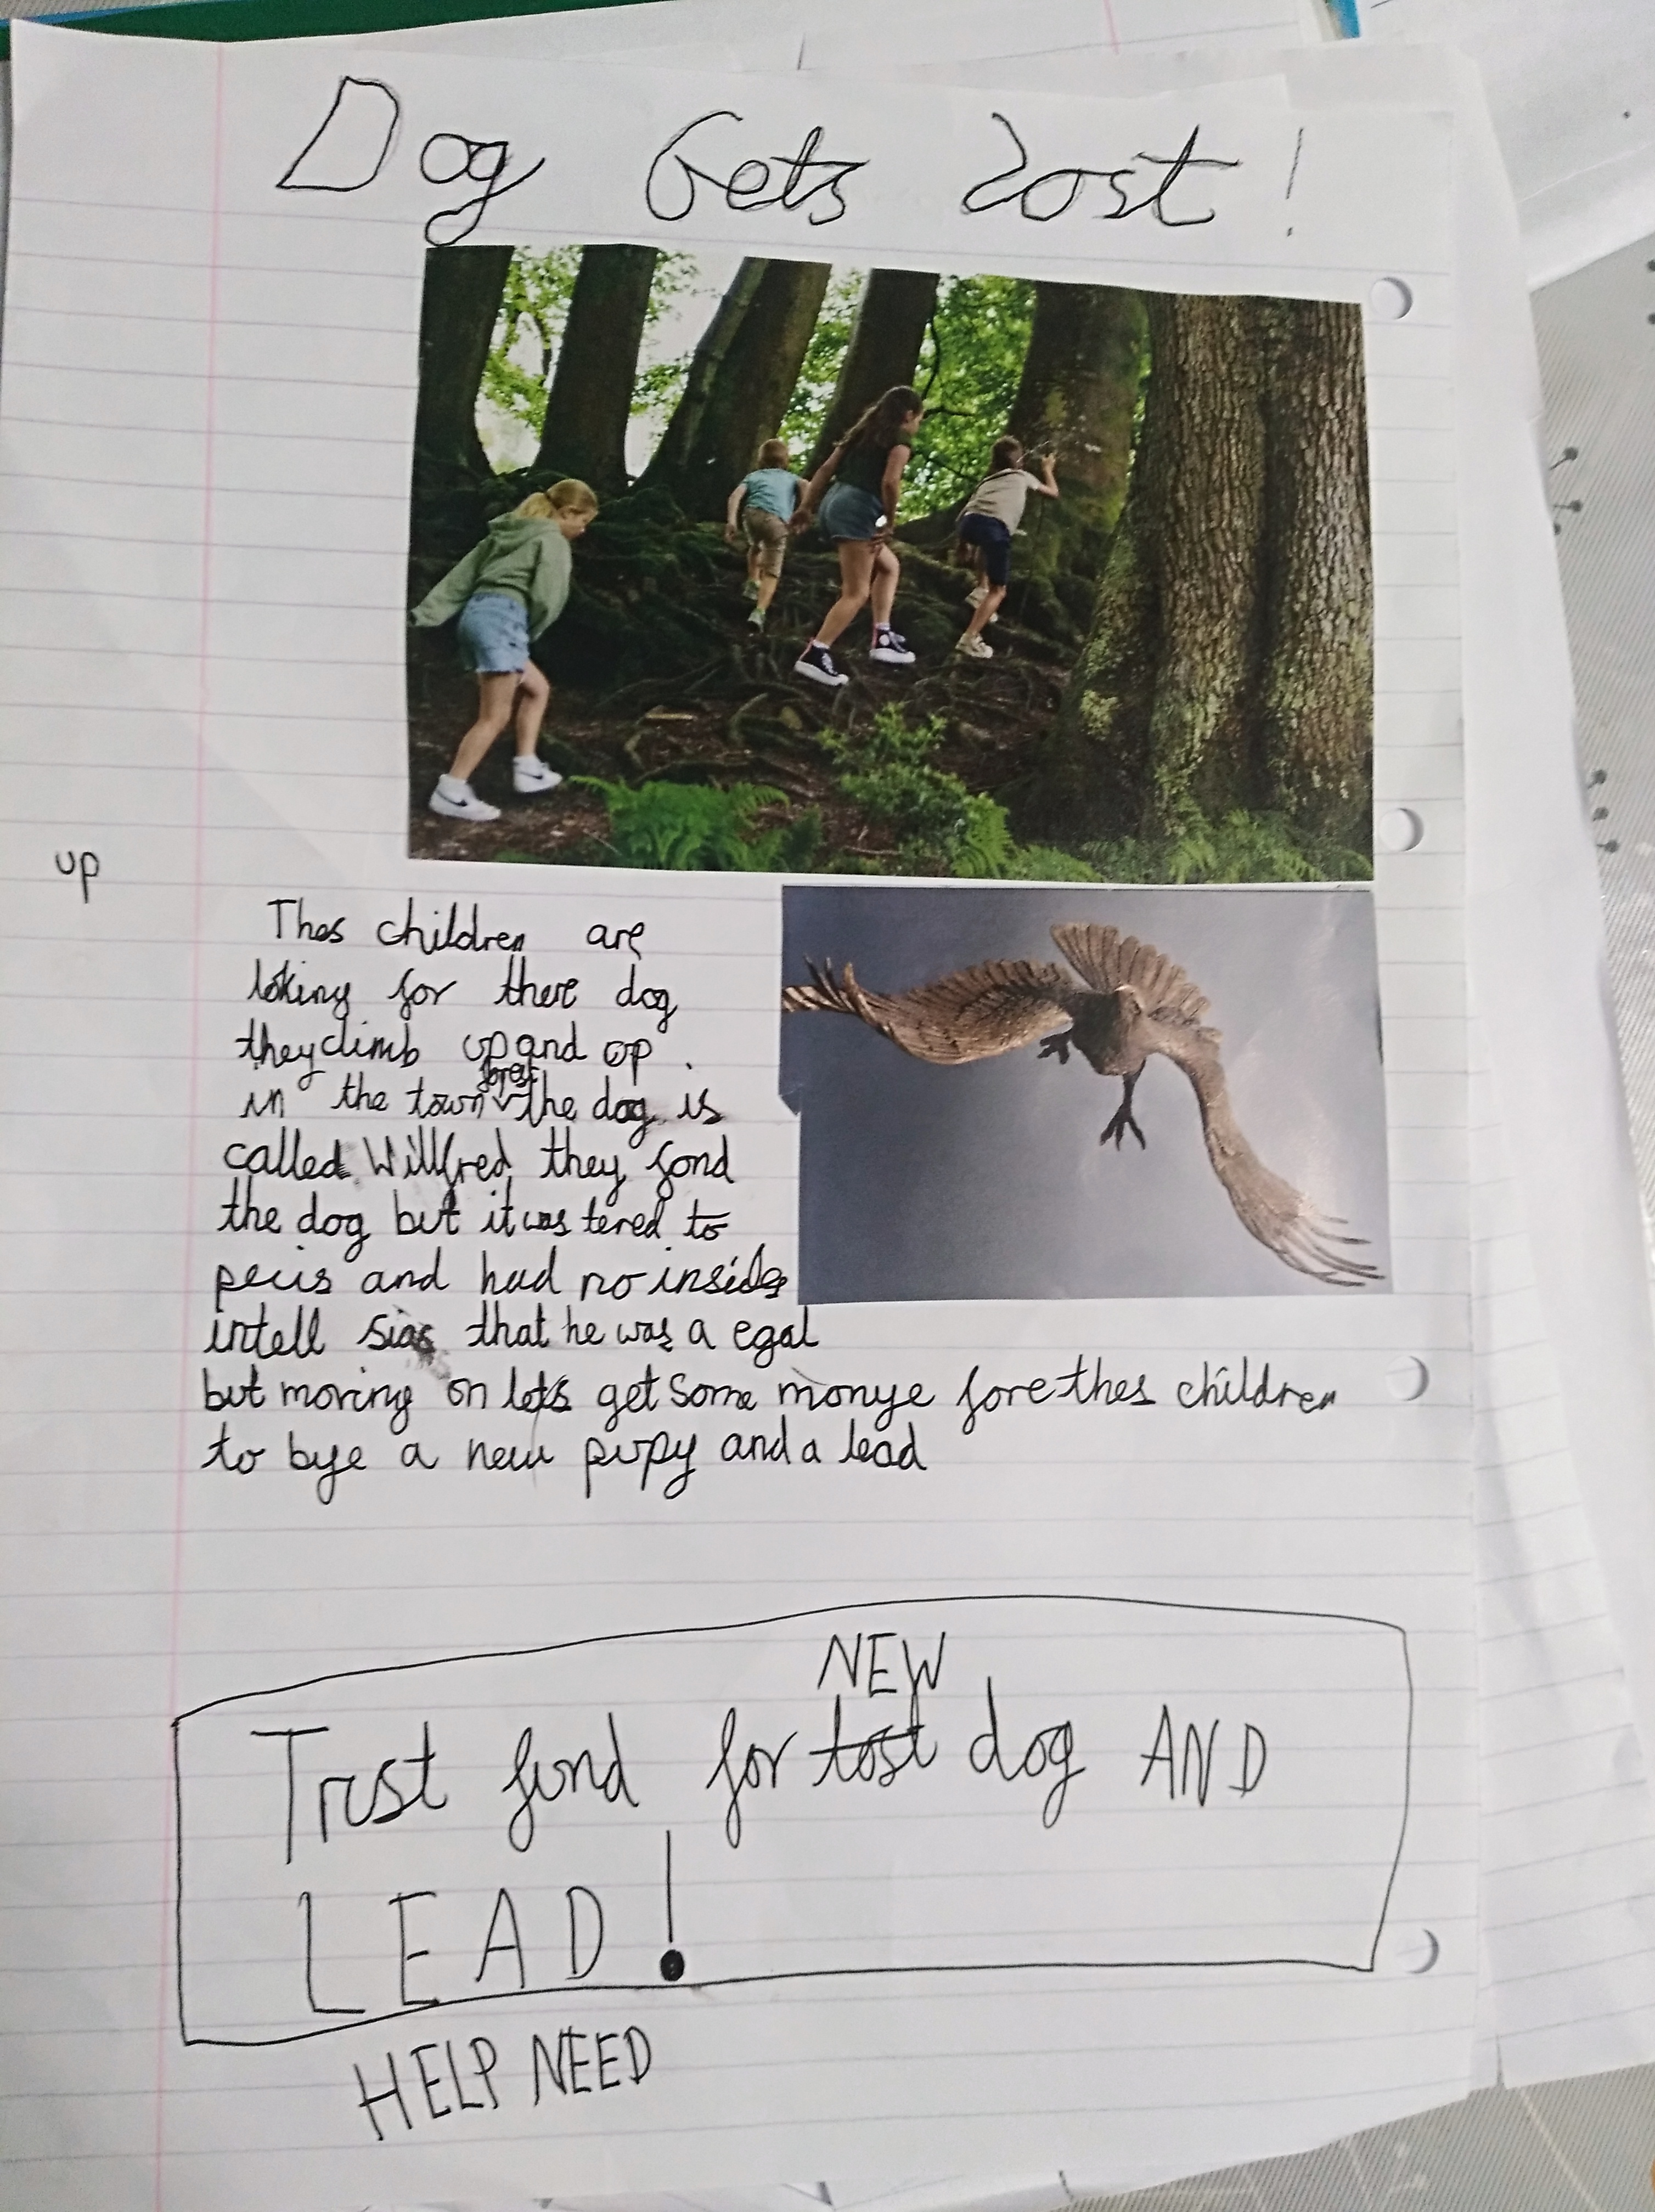 Dog Gets Lost!
up
Thes children are
loking for there dog
they climb up and up.
forest
in the town the dog is
called Willfred they fond
the dog but it was tered to
pecis and had no insides
intell that he was a egal
but moving on lets get some monye fore thes children
to bye a new pupy and a lead
NEW
Trust fund for lost dog AND
LEAD!
HELP NEED